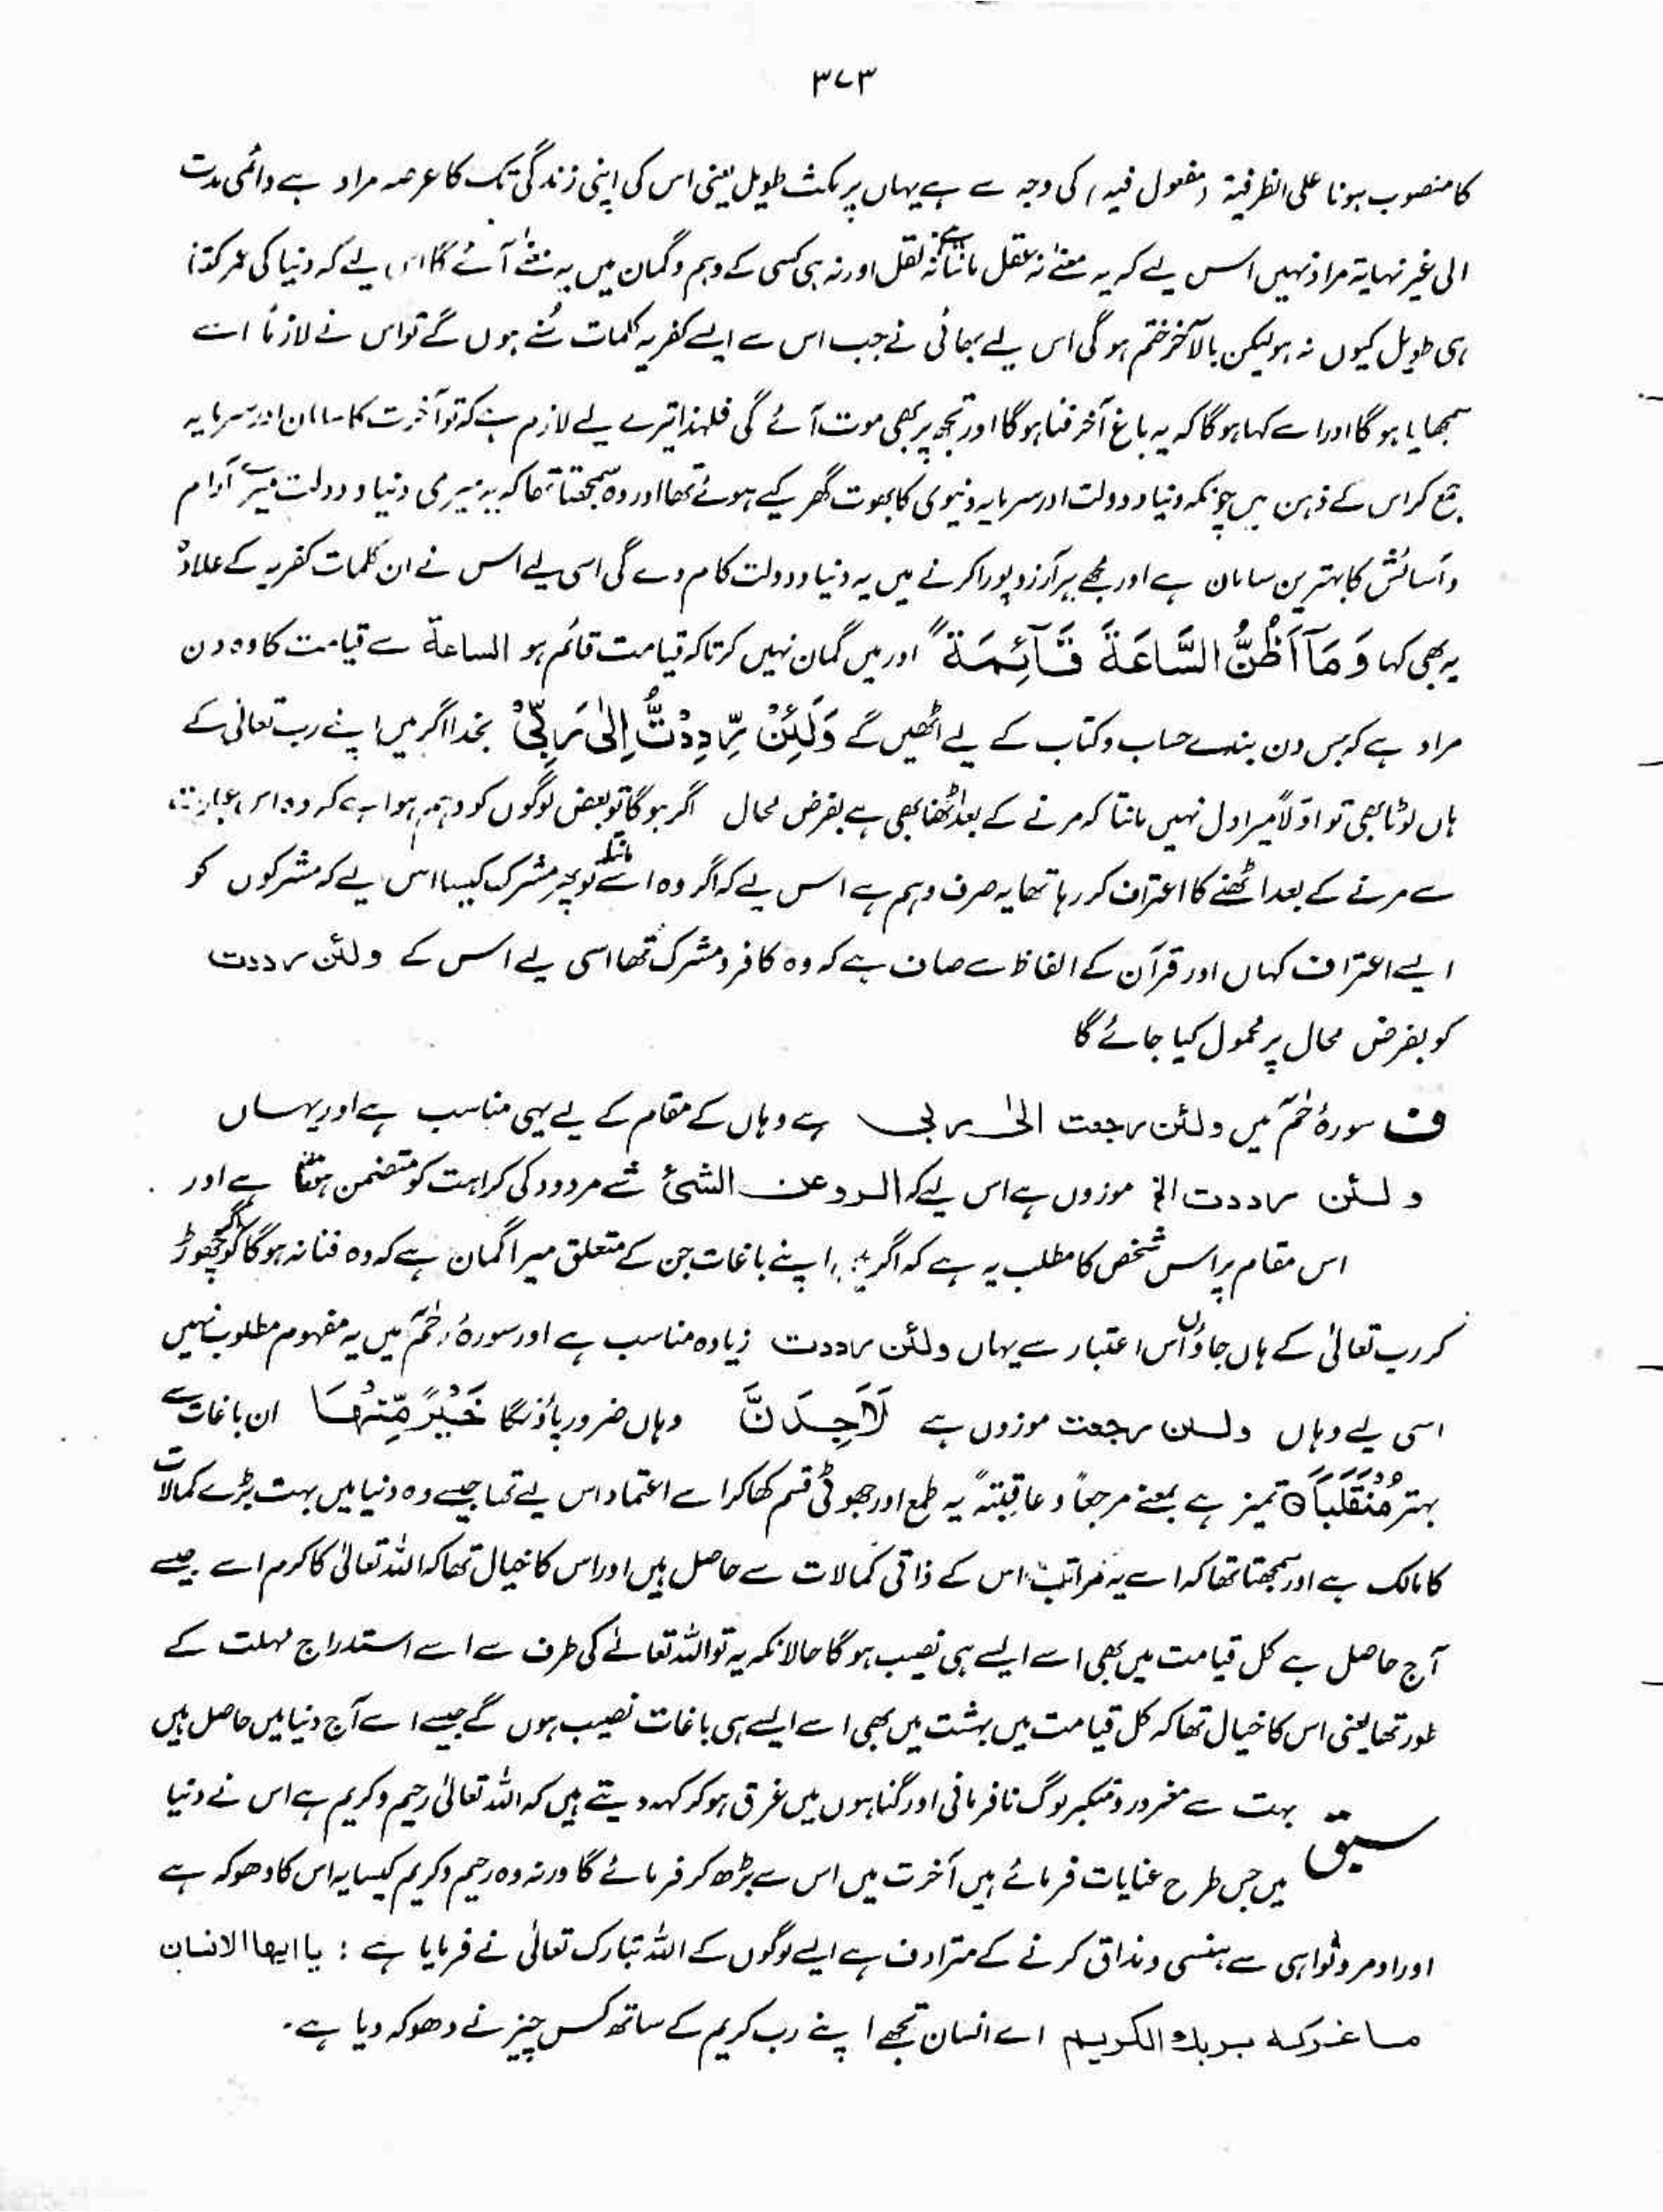 ۳۷۳
کا منصوب ہونا علی الظرفیۃ (مفعول فیہ) کی وجہ سے ہے یہاں پر مکث طویل یعنی اس کی اپنی زندگی تک کا عرصہ مراد ہے دائمی مدت
الی غیر نہایۃ مراد نہیں اس لیے کہ یہ معنٰے نہ عقل مانتا ہے نہ نقل اور نہ ہی کسی کے وہم و گمان میں یہ معنٰے آئے گا اس لیے کہ دنیا کی عمر کتنا
ہی طویل کیوں نہ ہو لیکن بالآخر ختم ہوگی اس لیے بھائی نے جب اس سے ایسے کفریہ کلمات سُنے ہوں گے تو اس نے لازماً اسے
سمجھایا ہوگا اور اسے کہا ہوگا کہ یہ باغ آخر فنا ہوگا اور تجھ پر بھی موت آئے گی فلہٰذا تیرے لیے لازم ہے کہ تو آخرت کا سامان اور سرمایہ
جمع کر اس کے ذہن میں چونکہ دنیا و دولت اور سرمایہ دنیوی کا بھوت گھر کیے ہوئے تھا اور وہ سمجھتا تھا کہ یہ میری دنیا و دولت میرے آرام
و آسائش کا بہترین سامان ہے اور مجھے ہر آرزو پورا کرنے میں یہ دنیا و دولت کام دے گی اسی لیے اس نے ان کلمات کفریہ کے علاوہ
یہ بھی کہا وَمَآ اَظُنُّ السَّاعَۃَ قَآئِمَۃً اور میں گمان نہیں کرتا کہ قیامت قائم ہو الساعۃ سے قیامت کا وہ دن
مراد ہے کہ جس دن بندے حساب و کتاب کے لیے اٹھیں گے وَلَئِنْ رُّدِدْتُّ اِلٰی رَبِّیْ بخدا اگر میں اپنے رب تعالیٰ کے
ہاں لوٹا بھی تو اوّلاً میرا دل نہیں مانتا کہ مرنے کے بعد اٹھنا بھی ہے بفرض محال اگر ہوگا تو بعض لوگوں کو وہم ہوا ہے کہ وہ اس عبارت
سے مرنے کے بعد اٹھنے کا اعتراف کر رہا تھا یہ صرف وہم ہے اس لیے کہ اگر وہ اسے مانتا تو پھر مشرک کیسا اس لیے کہ مشرکوں کو
ایسے اعتراف کہاں اور قرآن کے الفاظ سے صاف ہے کہ وہ کافر و مشرک تھا اسی لیے اس کے ولئن رددت
کو بفرض محال پر محمول کیا جائے گا
ف سورۂ حٰمٓ میں ولئن رجعت الیٰ ربی ہے وہاں کے مقام کے لیے یہی مناسب ہے اور یہاں
ولئن رددت الخ موزوں ہے اس لیے کہ الرد عن الشیٔ شے مردود کی کراہت کو متضمن ہوتا ہے اور
اس مقام پر اس شخص کا مطلب یہ ہے کہ اگر اپنے باغات جن کے متعلق میرا گمان ہے کہ وہ فنا نہ ہوگا کو چھوڑ
کر رب تعالیٰ کے ہاں جاؤں اس اعتبار سے یہاں ولئن رددت زیادہ مناسب ہے اور سورۂ حٰمٓ میں یہ مفہوم مطلوب نہیں
اسی لیے وہاں ولئن رجعت موزوں ہے لَاَجِدَنَّ وہاں ضرور پاؤنگا خَیْرًا مِّنْہَا ان باغات سے
بہتر مُنْقَلَبًا تمیز ہے بمعنے مرجعاً و عاقبتہً یہ طمع اور جھوٹی قسم کھا کر اسے اعتماد اس لیے تھا جیسے وہ دنیا میں بہت بڑے کمالات
کا مالک ہے اور سمجھتا تھا کہ اسے یہ مراتب اس کے ذاتی کمالات سے حاصل ہیں اور اس کا خیال تھا کہ اللہ تعالیٰ کا کرم اسے جیسے
آج حاصل ہے کل قیامت میں بھی اسے ایسے ہی نصیب ہوگا حالانکہ یہ تو اللہ تعالےٰ کی طرف سے اسے استدراج مہلت کے
طور تھا یعنی اس کا خیال تھا کہ کل قیامت میں بہشت میں بھی اسے ایسے ہی باغات نصیب ہوں گے جیسے اسے آج دنیا میں حاصل ہیں
سبق بہت سے مغرور و متکبر لوگ نافرمانی اور گناہوں میں غرق ہو کر کہہ دیتے ہیں کہ اللہ تعالیٰ رحیم و کریم ہے اس نے دنیا
میں جس طرح عنایات فرمائے ہیں آخرت میں اس سے بڑھ کر فرمائے گا ورنہ وہ رحیم و کریم کیسا یہ اس کا دھوکہ ہے
اور اوامر و نواہی سے ہنسی و مذاق کرنے کے مترادف ہے ایسے لوگوں کے اللہ تبارک تعالیٰ نے فرمایا ہے : یا ایھا الانسان
ما غرک بربک الکریم اے انسان تجھے اپنے رب کریم کے ساتھ کس چیز نے دھوکہ دیا ہے۔